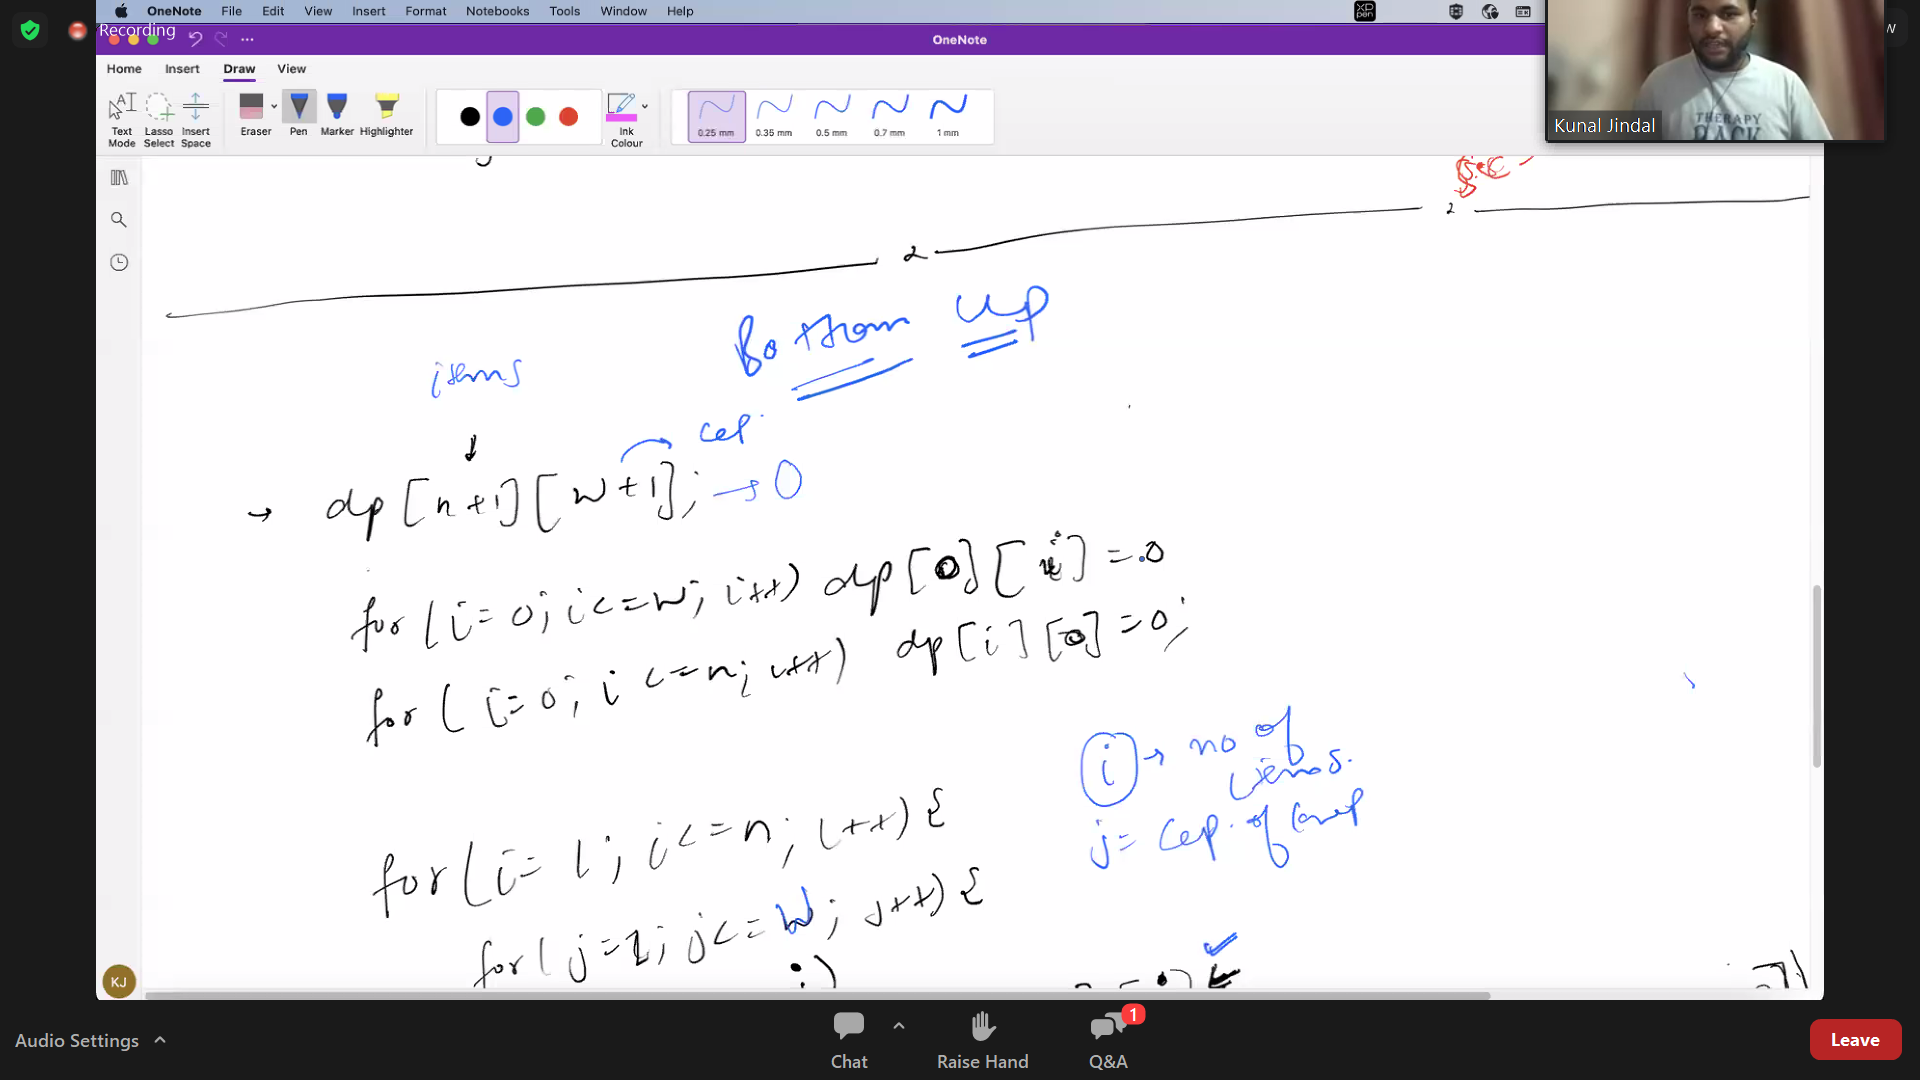 OneNote File Edit View Insert Format Notebooks Tools Window Help
Recording
OneNote
Home Insert Draw View
Text Mode Lasso Select Insert Space Eraser Pen Marker Highlighter Ink Colour 0.25 mm 0.35 mm 0.5 mm 0.7 mm 1 mm
Kunal Jindal
THERAPY
W
2
2
Bottom Up
items
cap.
→ dp[n+1][W+1]; → 0
for (i=0; i<=W; i++) dp[0][i] = 0
for (i=0; i<=n; i++) dp[i][0] = 0;
i → no of
items.
j = cap. of
for (i= 1; i<=n; i++) {
for (j=1; j<=W; j++) {
KJ
1
Audio Settings Chat Raise Hand Q&A Leave